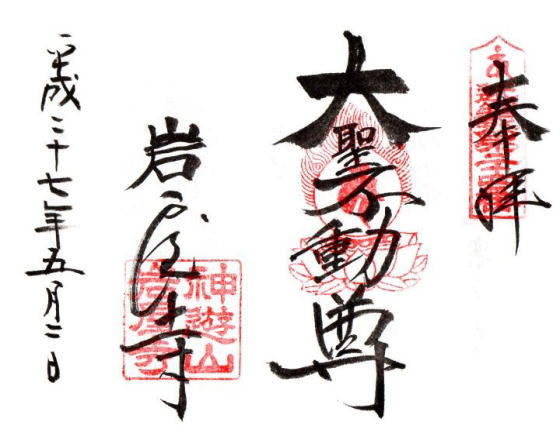 奉拝
大聖不動尊
岩屋寺
神遊山
岩屋寺
平成二十七年五月二日